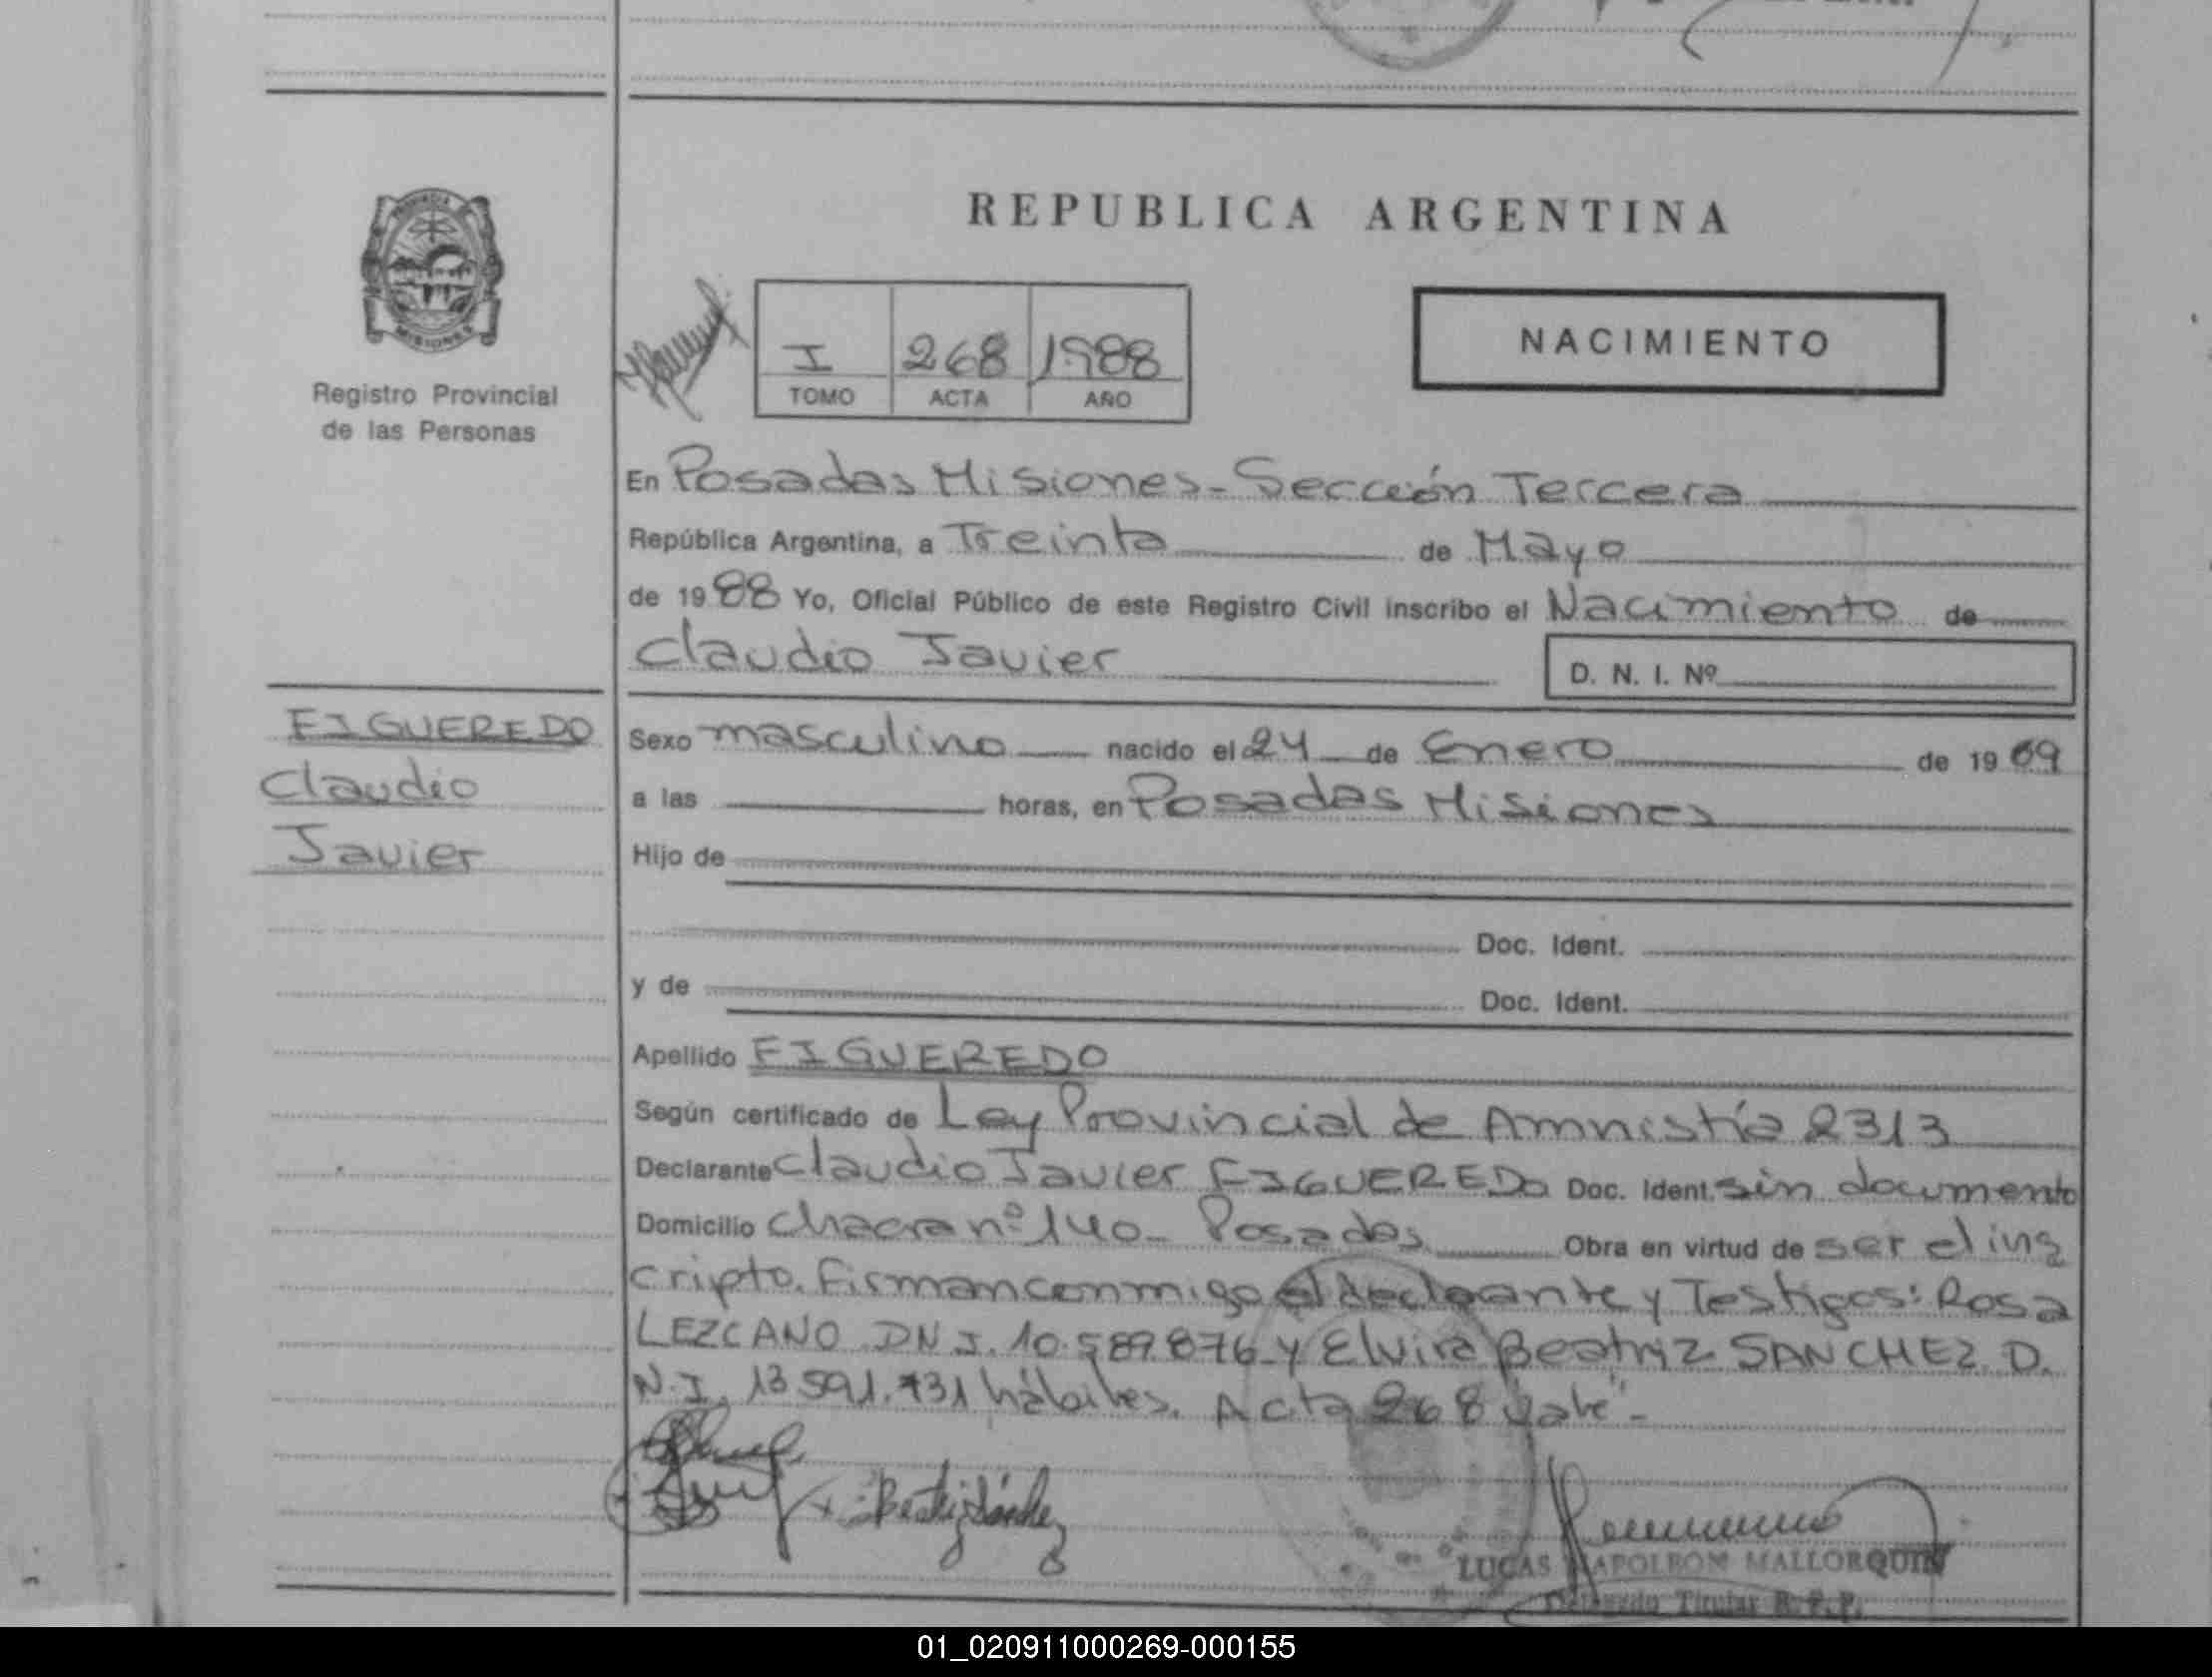 REPUBLICA ARGENTINA
PROVINCIA
MISIONES
Registro Provincial
de las Personas
I 268 1988
TOMO ACTA AÑO
NACIMIENTO
En Posadas Misiones - Sección Tercera
República Argentina, a Treinta de Mayo
de 1988 Yo, Oficial Público de este Registro Civil inscribo el Nacimiento de
Claudio Javier
D. N. I. Nº
FIGUEREDO
Claudio
Javier
Sexo masculino nacido el 24 de Enero de 1969
a las horas, en Posadas Misiones
Hijo de
Doc. Ident.
y de Doc. Ident.
Apellido FIGUEREDO
Según certificado de Ley Provincial de Amnistía 2313
Declarante Claudio Javier FIGUEREDO Doc. Ident. sin documento
Domicilio Chacra nº 140 - Posadas Obra en virtud de ser el ins
cripto. Firman conmigo el declarante y Testigos: Rosa
LEZCANO DN I. 10.589.876 y Elvira Beatriz SANCHEZ D.
N.I. 13 591.731 hábiles. Acta 268 Vale -
Beatriz Sánchez
LUCAS NAPOLEON MALLORQUIN
Delegado Titular R. P. P.
01_020911000269-000155